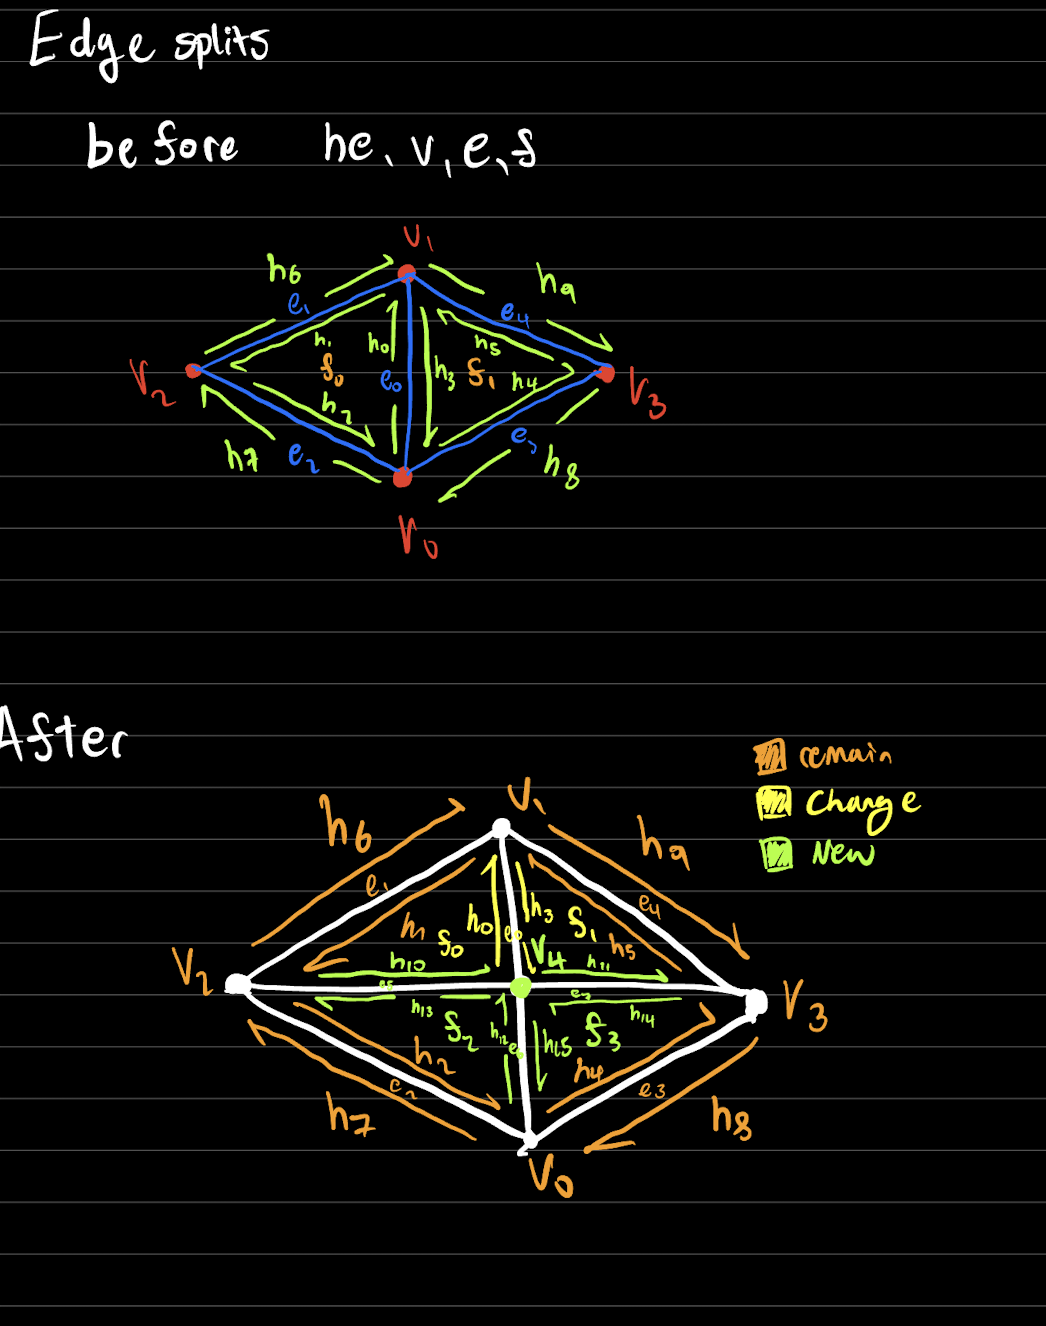 Edge splits
before he, v, e, f
V1
h6 h9
e1 e4
h1 h0 h5
V2 f0 e0 h3 f1 h4 V3
h2
h7 e2 h8
V0
After
remain
Change
New
V1
h6 h9
e1 e4
h1 h0 h3 f1 h5
f0 e0
V2 h10 V4 h11
e5 V3
h13 f2 h12 h15 f3 h14
h2 h4
e2 e3
h7 h8
V0